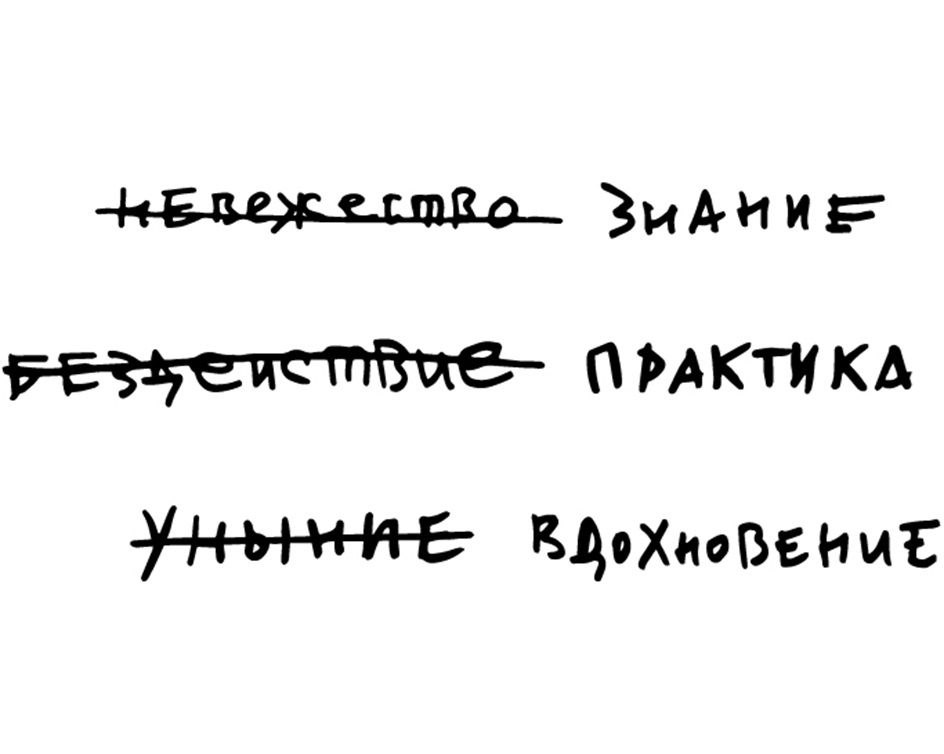 невежество ЗНАНИЕ
БЕЗДействие ПРАКТИКА
УНЫНИЕ ВДОХНОВЕНИЕ